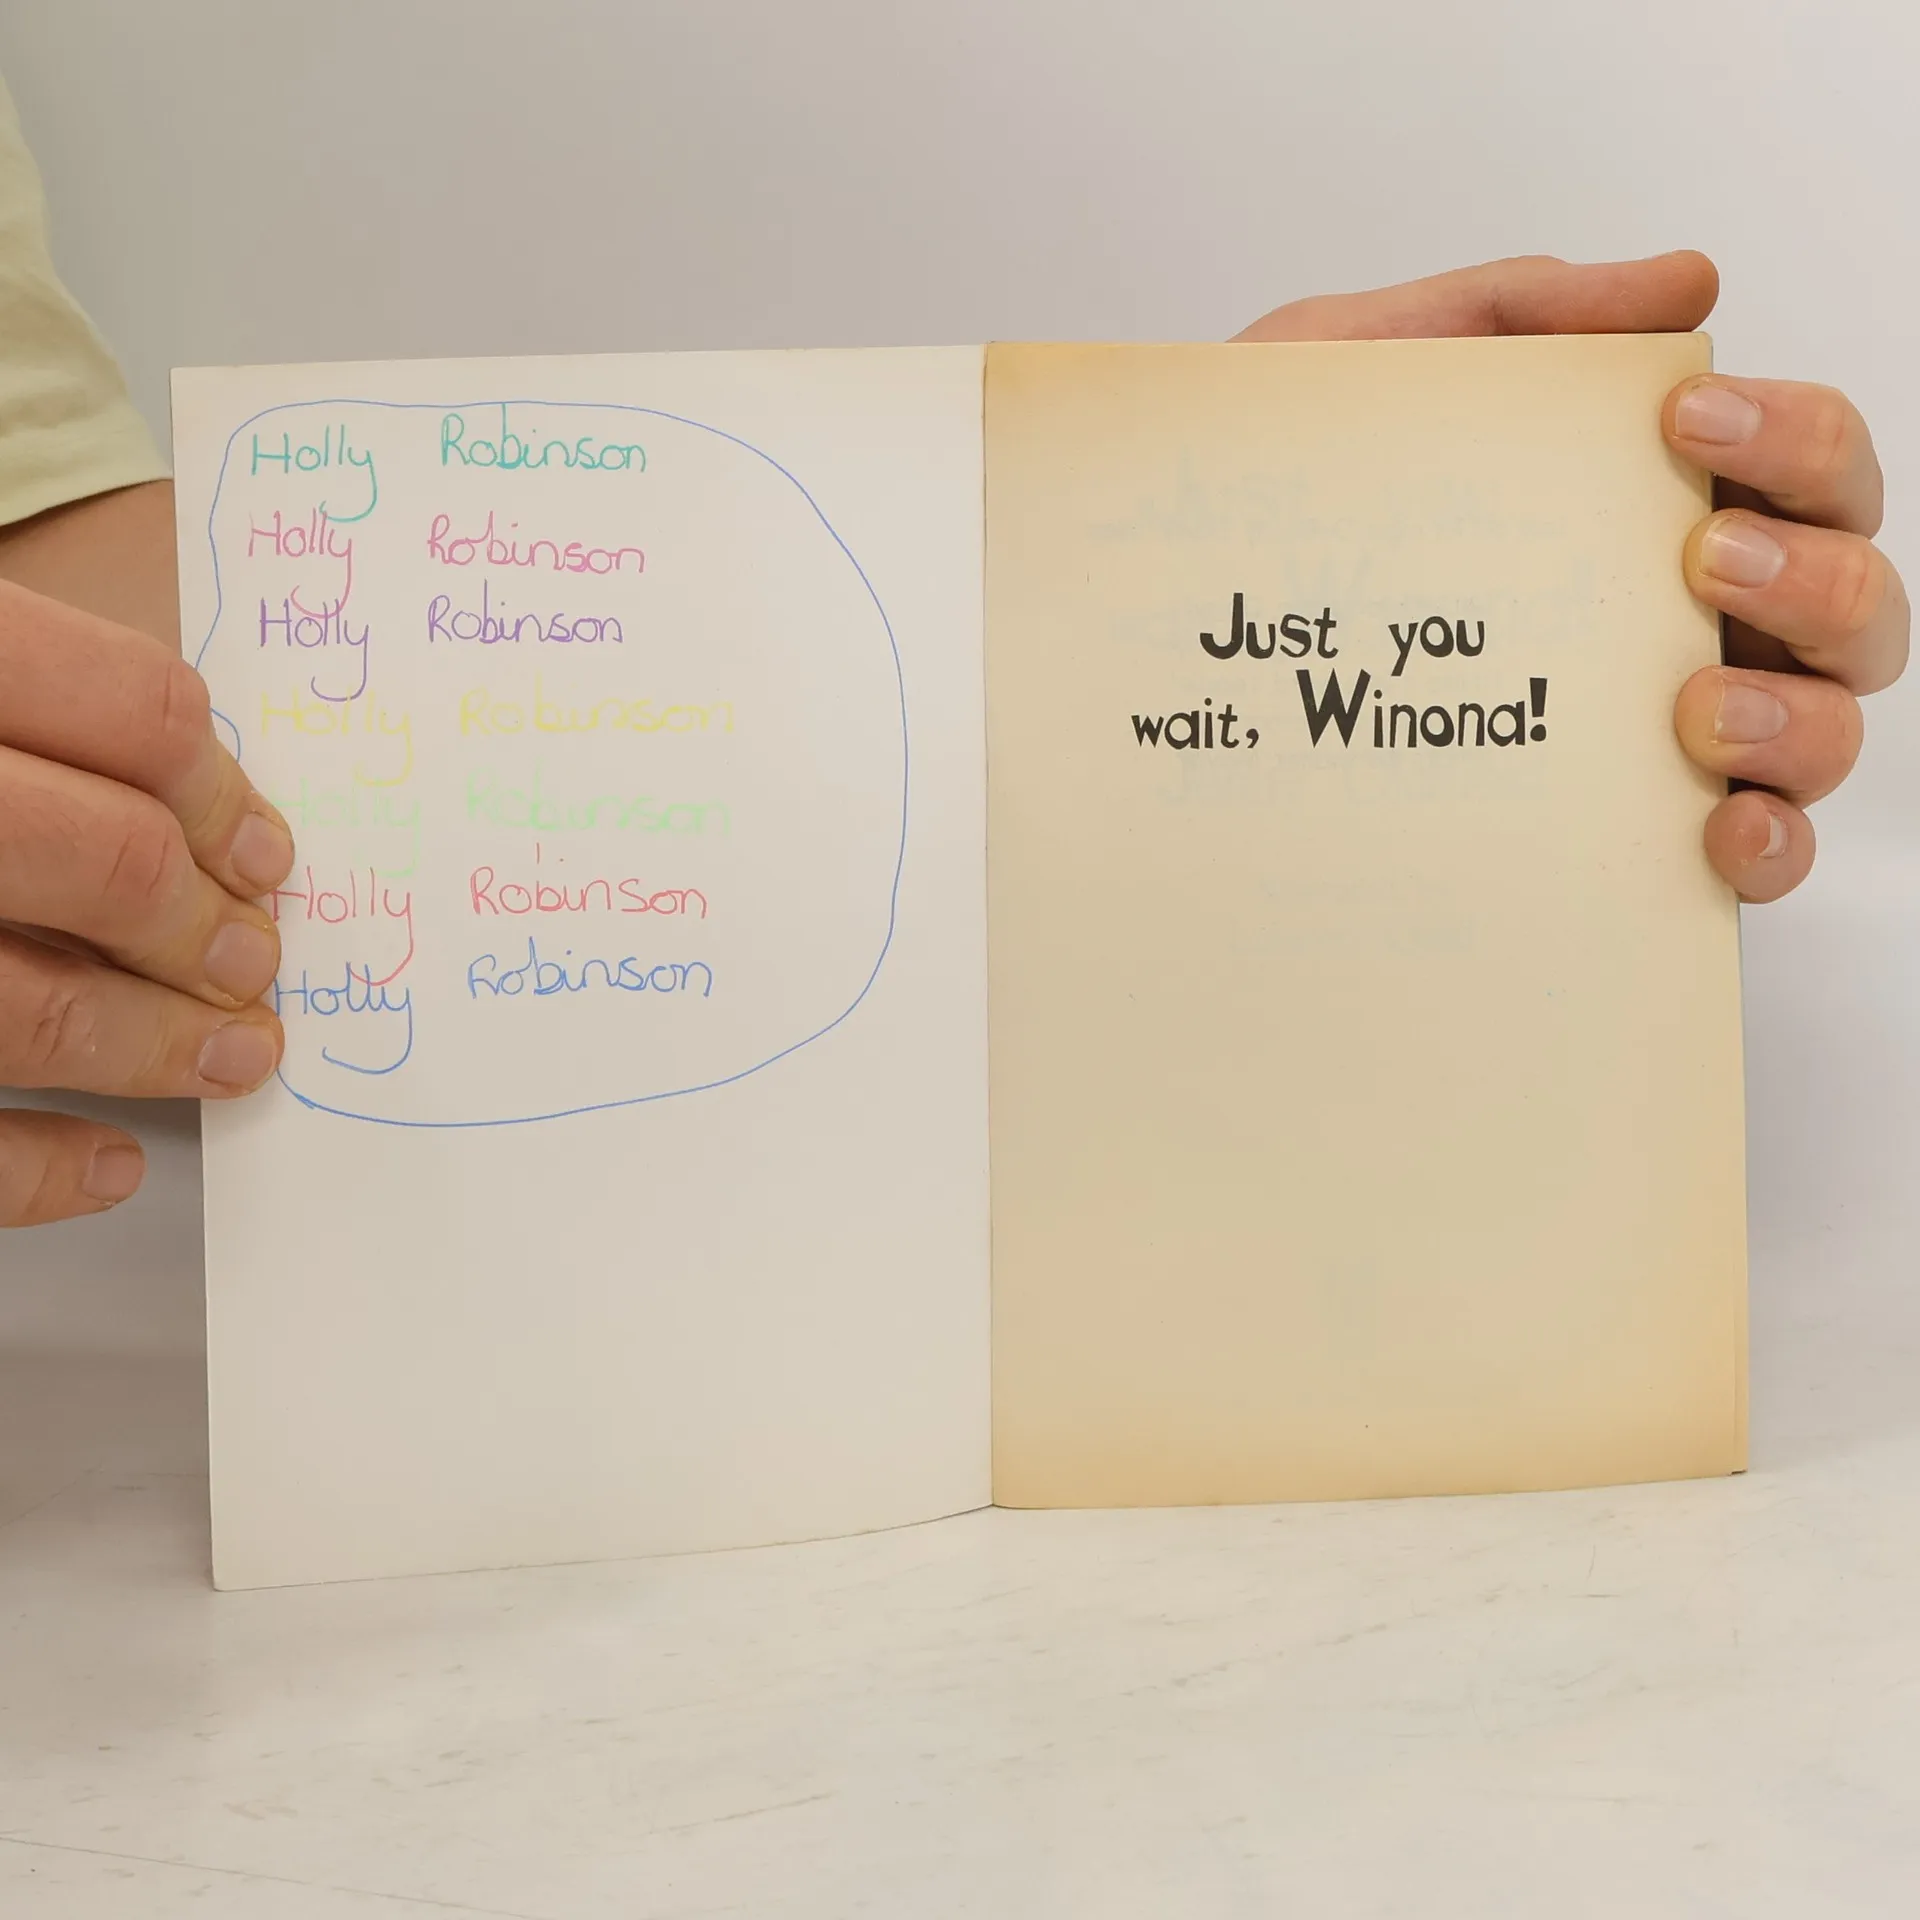 Holly Robinson
Holly Robinson
Holly Robinson
Holly Robinson
Holly Robinson
Holly Robinson
Holly Robinson
Just you
wait, Winona!